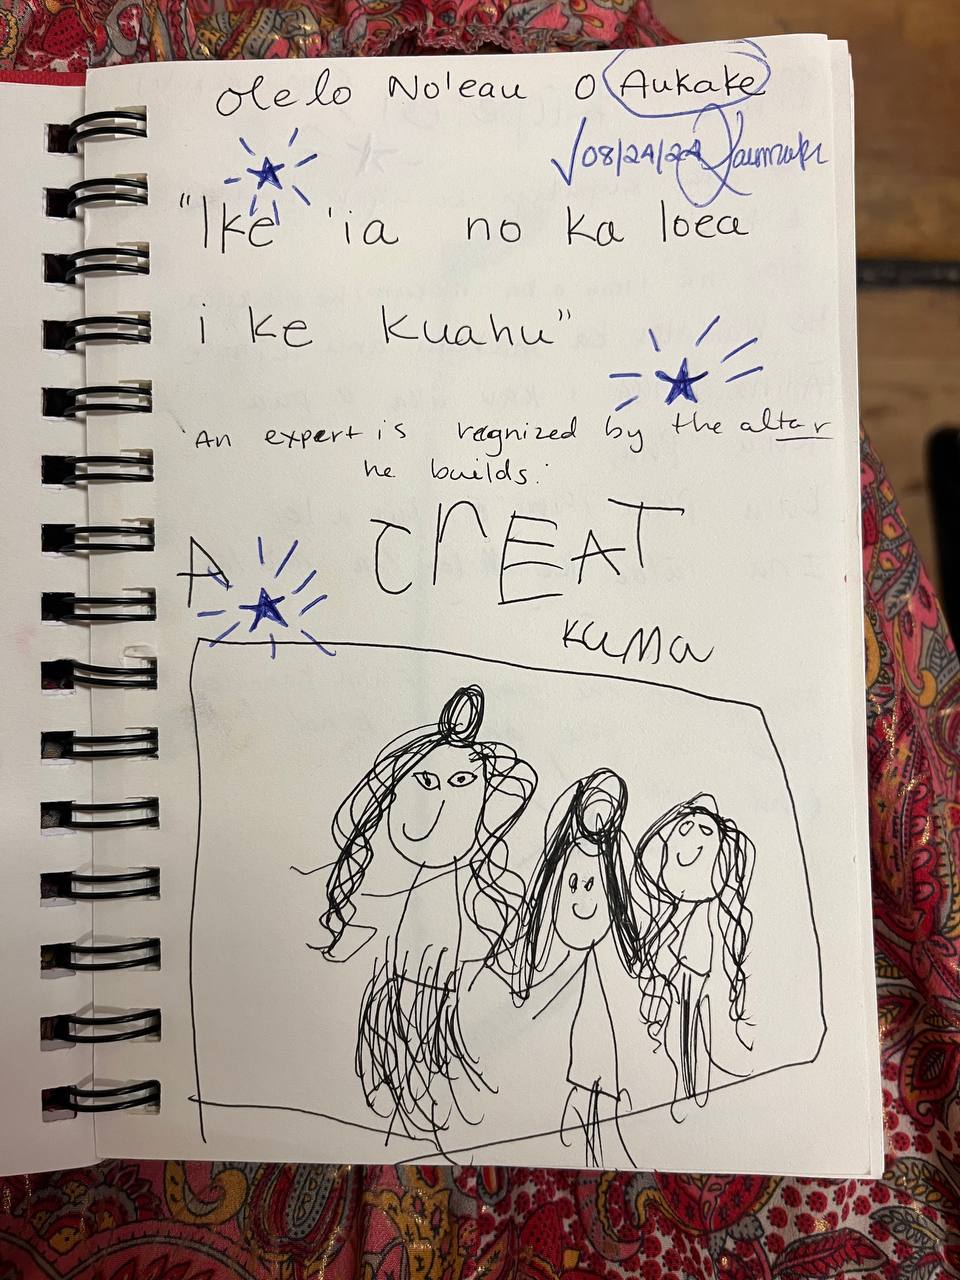 Olelo No'eau O Aukake
√08/24/24
"Ike 'ia no ka loea
i ke kuahu"
An expert is regnized by the altar
he builds.
A CrEAT
KuMa